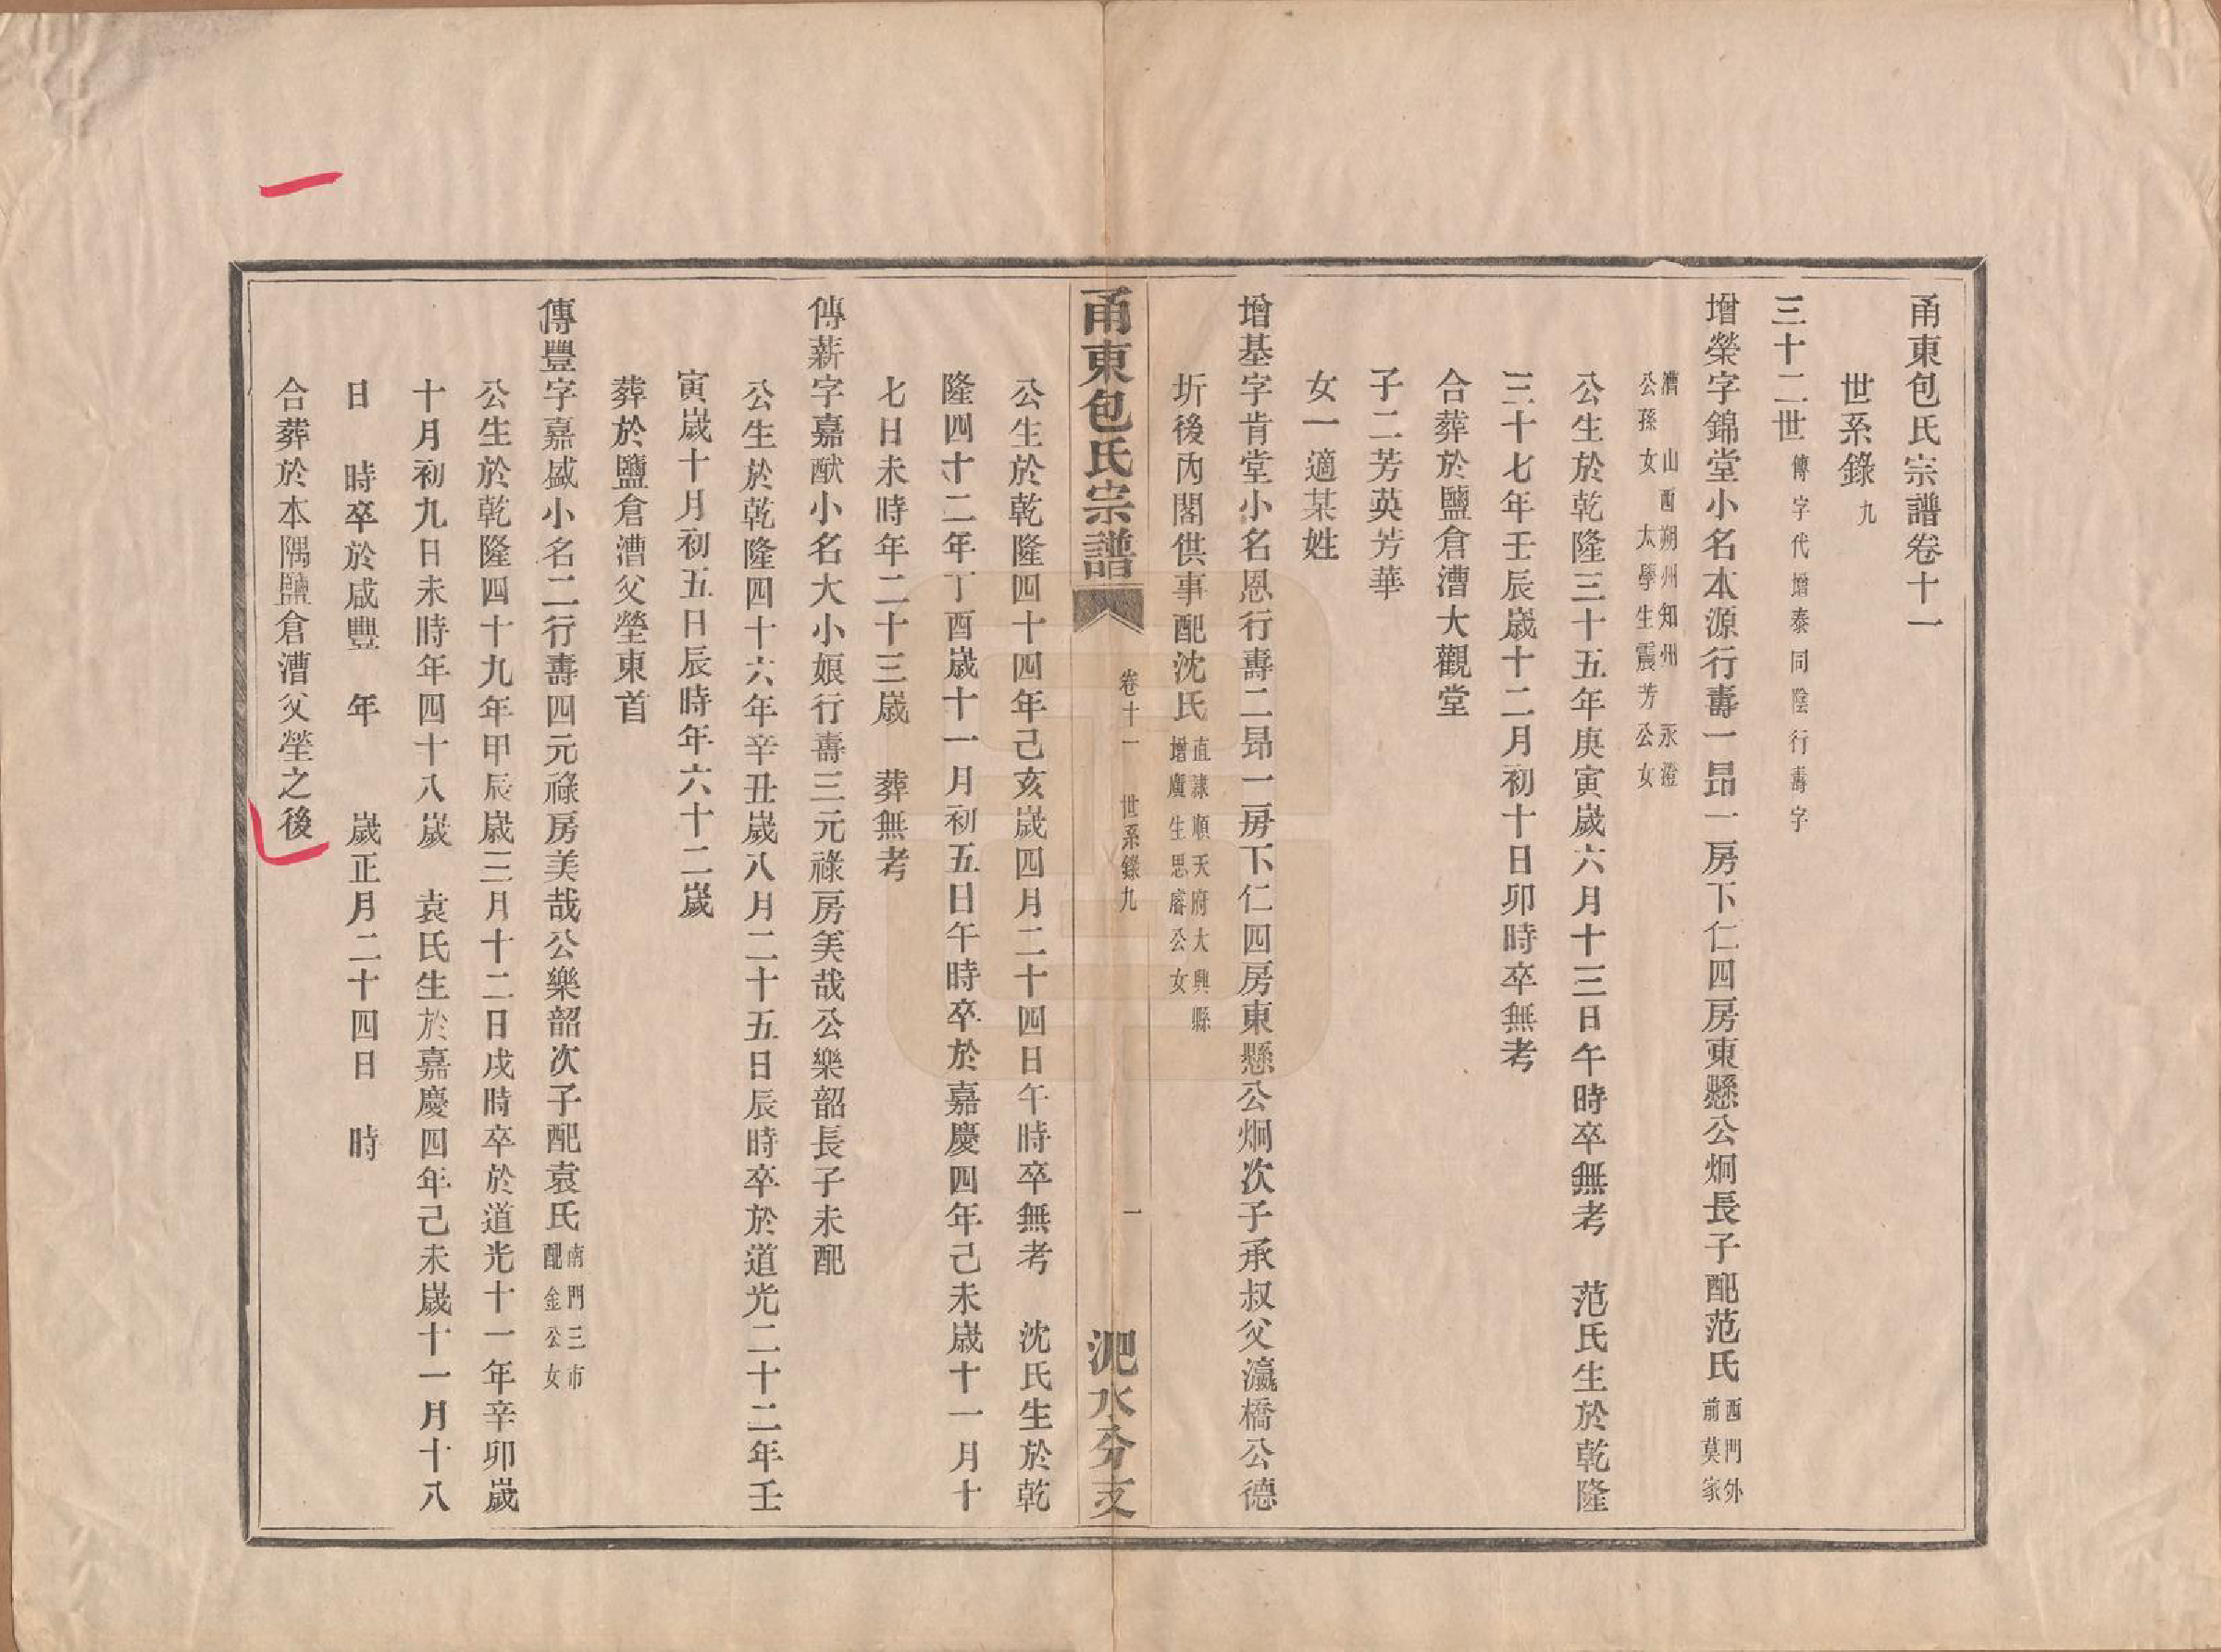 甬東包氏宗譜卷十一
世系錄九
三十二世傳字代增泰同陰行壽字
增榮字錦堂小名本源行壽一昂一房下仁四房東懸公炯長子配范氏西門外前莫家
漕山西朔州知州永澄公孫女太學生震芳公女
公生於乾隆三十五年庚寅歲六月十三日午時卒無考 范氏生於乾隆
三十七年壬辰歲十二月初十日卯時卒無考
合葬於鹽倉漕大觀堂
子二芳英芳華
女一適某姓
增基字肯堂小名恩行壽二昂一房下仁四房東懸公炯次子承叔父瀛橋公德
圻後內閣供事配沈氏直隷順天府大興縣增廣生思睿公女
甬東包氏宗譜 卷十一 世系錄九 一 淝水分支
公生於乾隆四十四年己亥歲四月二十四日午時卒無考 沈氏生於乾
隆四十二年丁酉歲十一月初五日午時卒於嘉慶四年己未歲十一月十
七日未時年二十三歲 葬無考
傳薪字嘉猷小名大小娘行壽三元祿房美哉公樂韶長子未配
公生於乾隆四十六年辛丑歲八月二十五日辰時卒於道光二十二年壬
寅歲十月初五日辰時年六十二歲
葬於鹽倉漕父塋東首
傳豐字嘉盛小名二行壽四元祿房美哉公樂韶次子配袁氏南門三市配金公女
公生於乾隆四十九年甲辰歲三月十二日戌時卒於道光十一年辛卯歲
十月初九日未時年四十八歲 袁氏生於嘉慶四年己未歲十一月十八
日 時卒於咸豐 年 歲正月二十四日 時
合葬於本隅鹽倉漕父塋之後